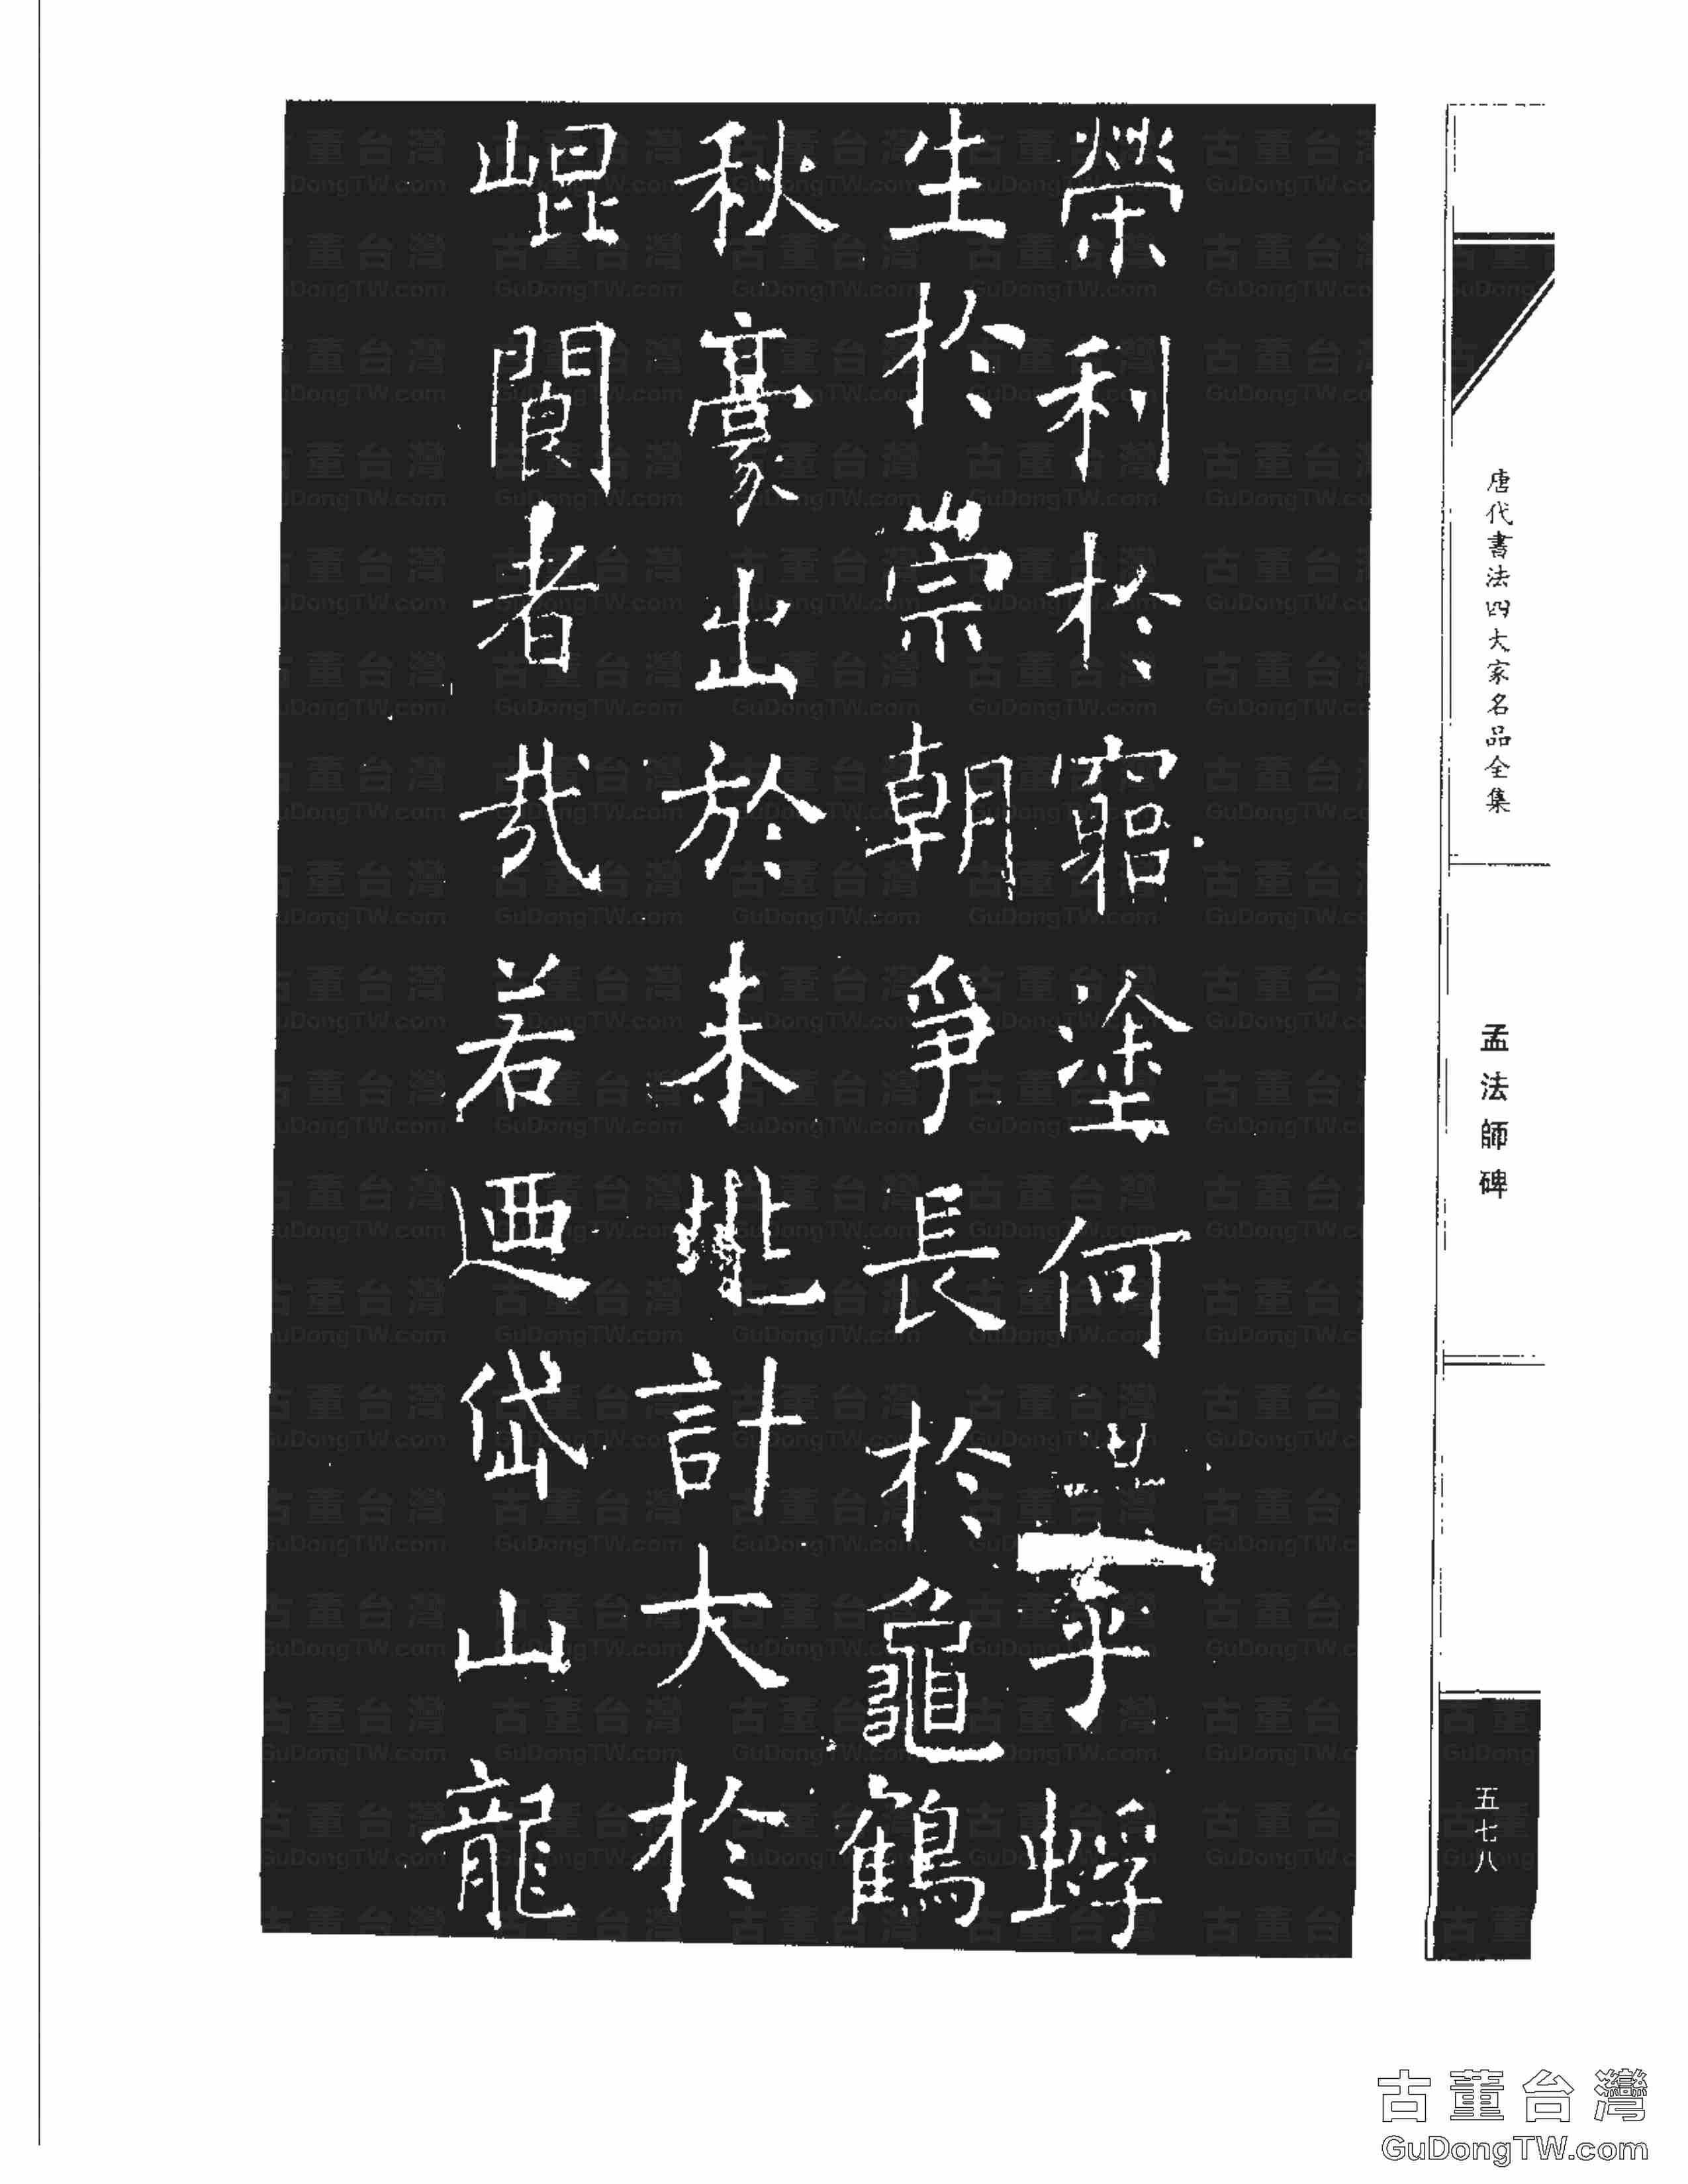 唐代書法四大家名品全集
孟法師碑
五七八
榮利於竆塗何乎蜉
生於崇朝爭長於龜鶴
秋豪出於未兆計大於
崐閬者哉若迺岱山龍
古董台灣
GuDongTW.com